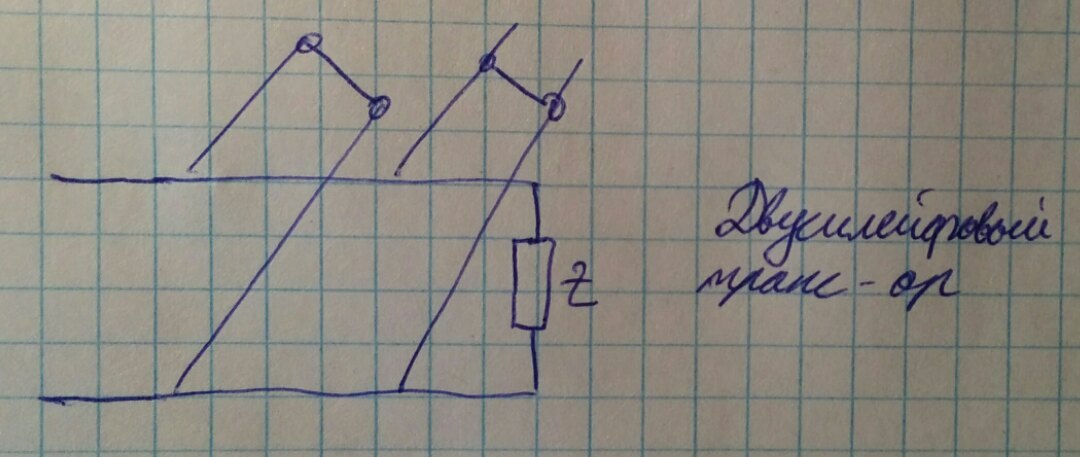 Z
Двушлейфовый
транс-ор